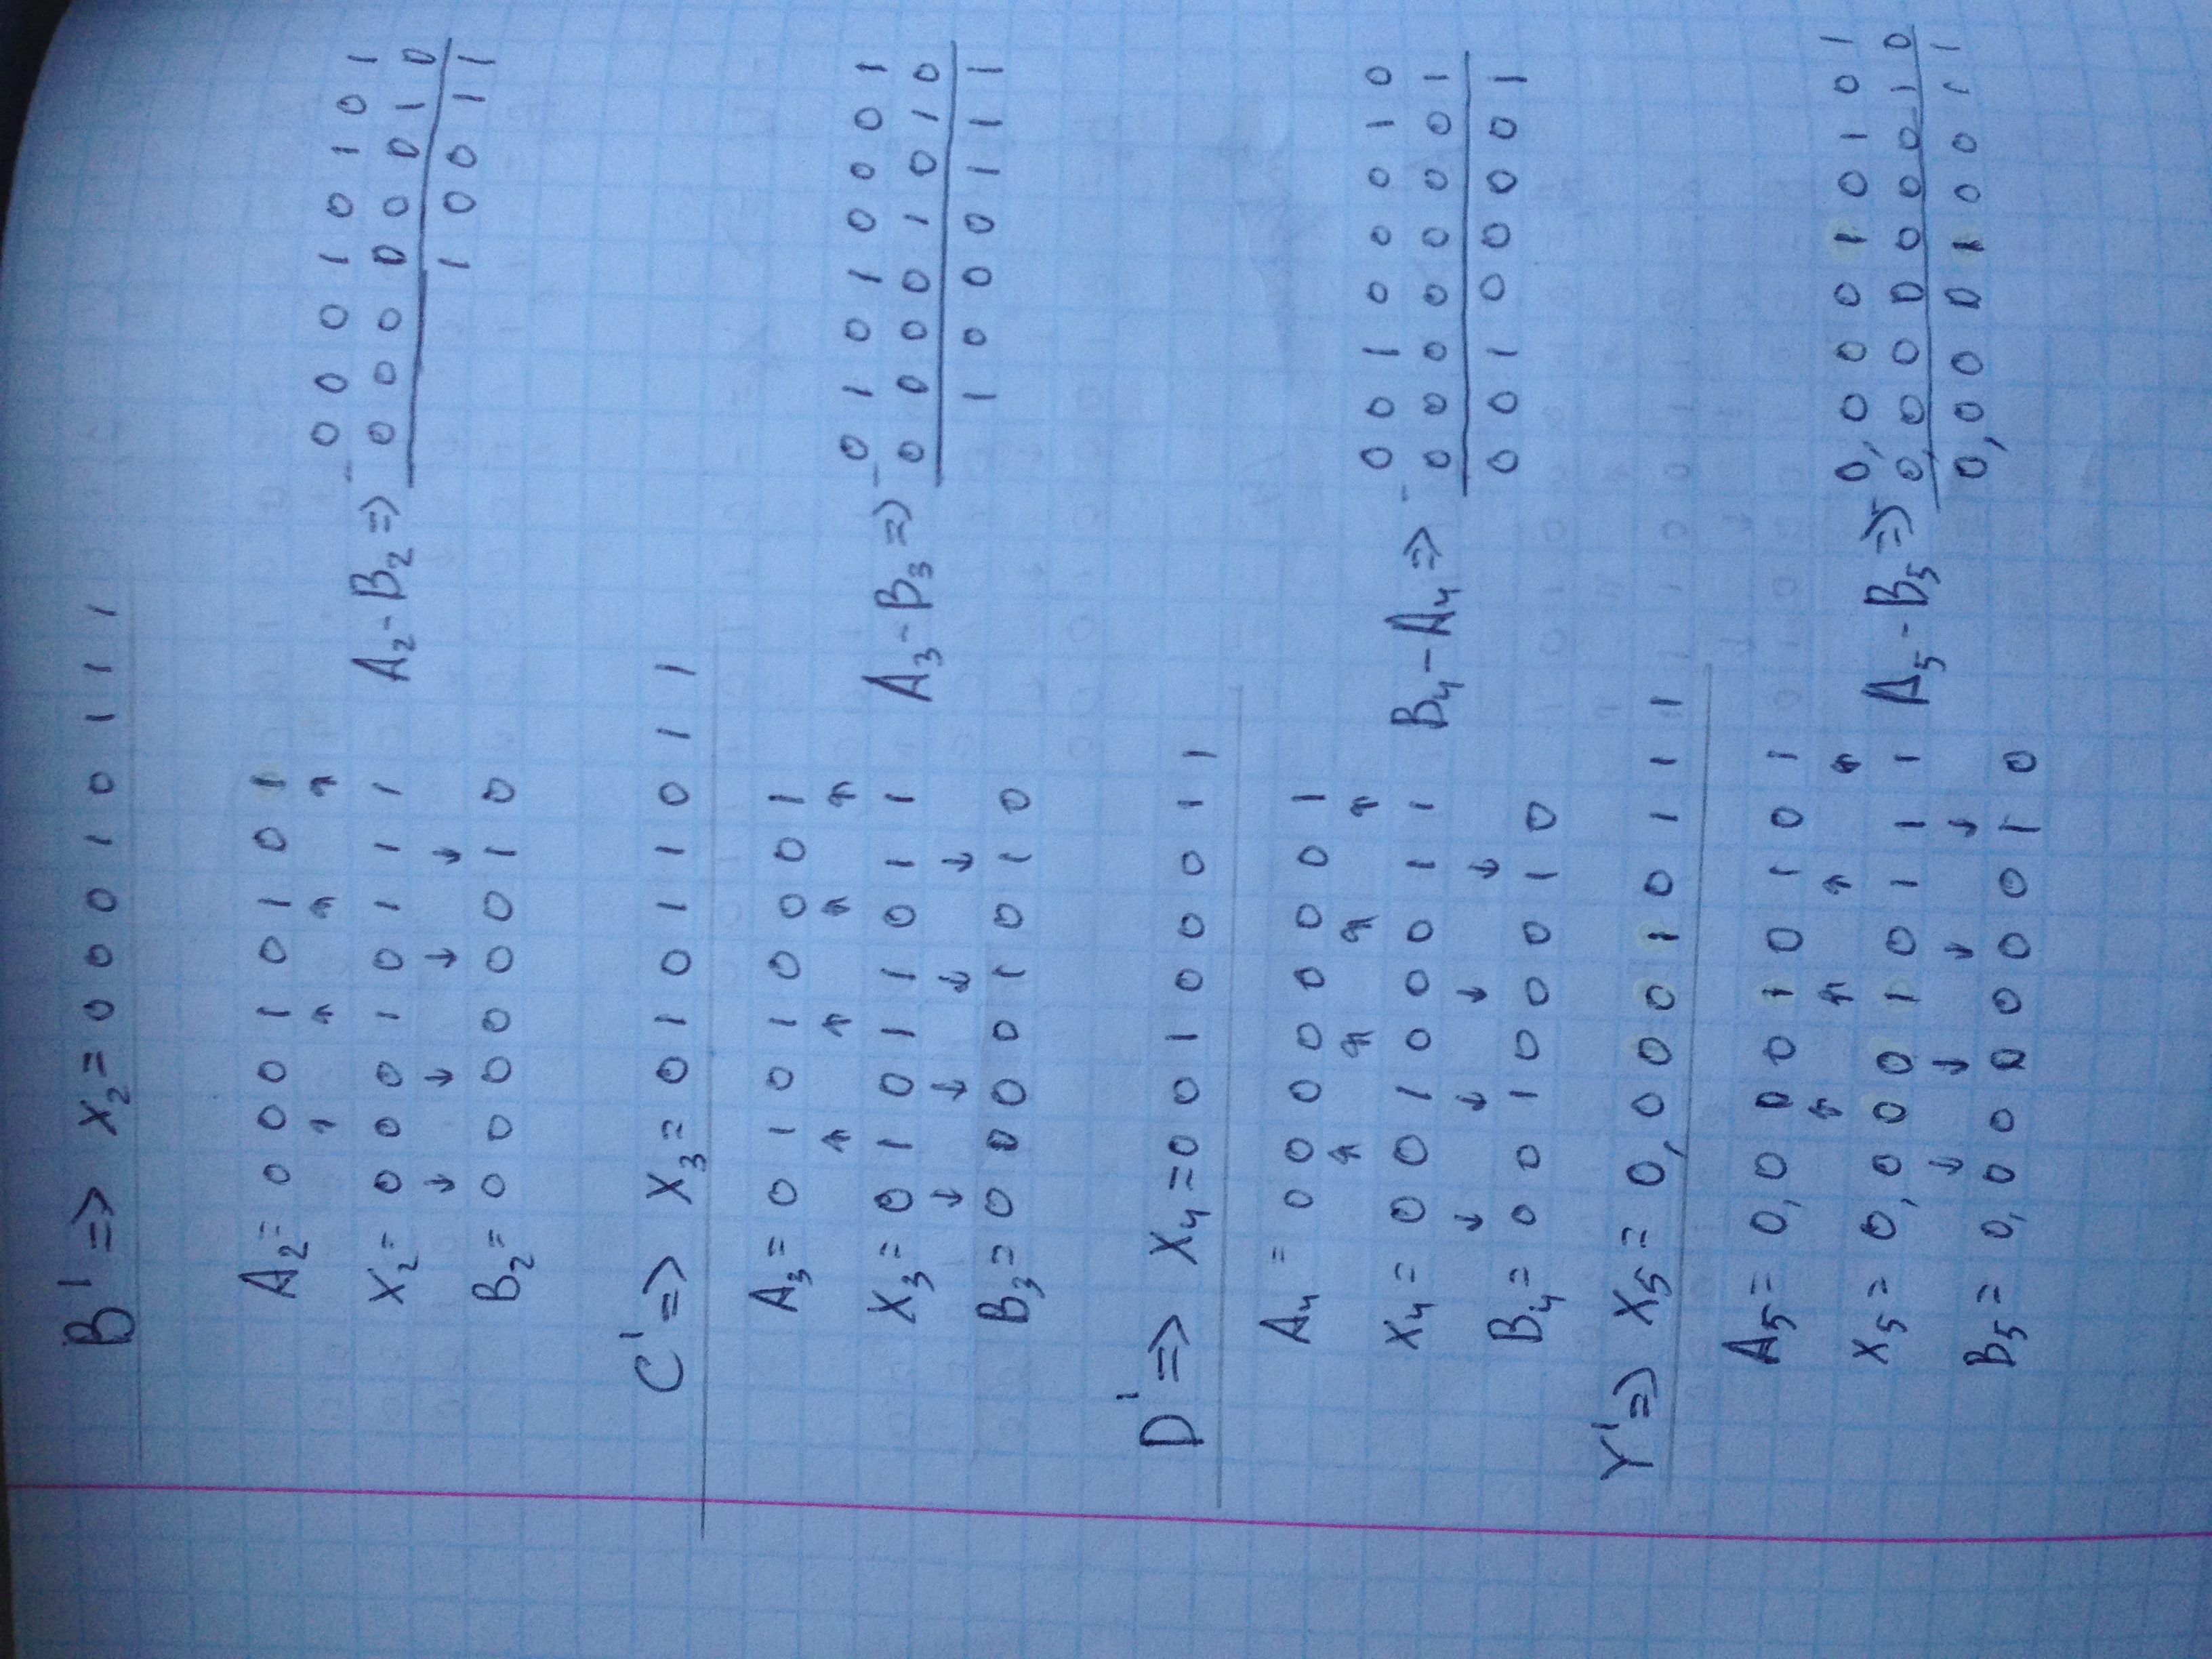 B' => X₂ = 0 0 0 1 0 1 1 1
A₂ = 0 0 0 1 0 1 0 1
↑ ↑ ↑ ↑
X₂ = 0 0 0 1 0 1 1 1
↓ ↓ ↓ ↓
B₂ = 0 0 0 0 0 0 1 0
A₂ - B₂ => - 0 0 0 1 0 1 0 1
0 0 0 0 0 0 1 0
1 0 0 1 1
C' => X₃ = 0 1 0 1 1 0 1 1
A₃ = 0 1 0 1 0 0 0 1
↑ ↑ ↑ ↑
X₃ = 0 1 0 1 1 0 1 1
↓ ↓ ↓ ↓
B₃ = 0 0 0 0 1 0 1 0
A₃ - B₃ => - 0 1 0 1 0 0 0 1
0 0 0 0 1 0 1 0
1 0 0 0 1 1 1
D' => X₄ = 0 0 1 0 0 0 1 1
A₄ = 0 0 0 0 0 0 0 1
↑ ↑ ↑ ↑
X₄ = 0 0 1 0 0 0 1 1
↓ ↓ ↓ ↓
B₄ = 0 0 1 0 0 0 1 0
B₄ - A₄ => - 0 0 1 0 0 0 1 0
0 0 0 0 0 0 0 1
0 0 1 0 0 0 0 1
Y' => X₅ = 0,0 0 0 1 0 1 1 1
A₅ = 0,0 0 0 1 0 1 0 1
↑ ↑ ↑ ↑
X₅ = 0,0 0 0 1 0 1 1 1
↓ ↓ ↓ ↓
B₅ = 0,0 0 0 0 0 0 1 0
A₅ - B₅ => - 0,0 0 0 1 0 1 0 1
0,0 0 0 0 0 0 1 0
0,0 0 0 1 0 0 1 1